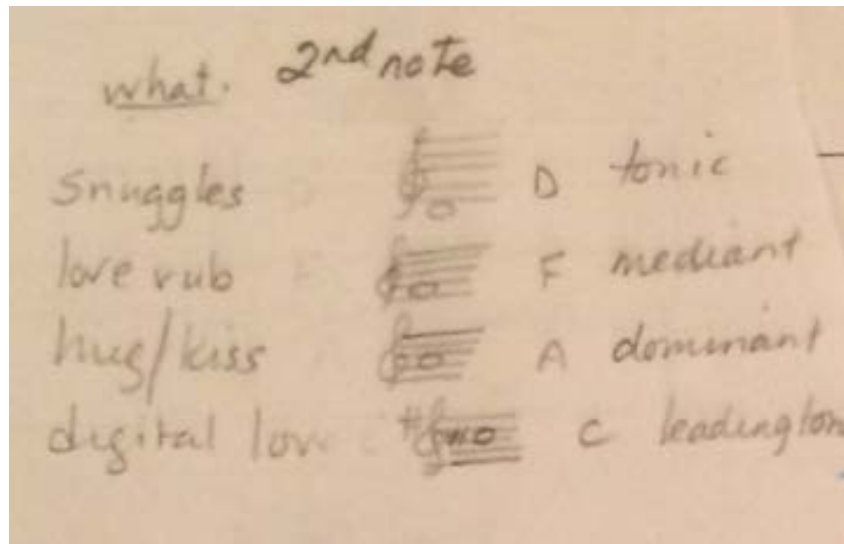 what. 2nd note
snuggles D tonic
love rub F mediant
hug/kiss A dominant
digital # C